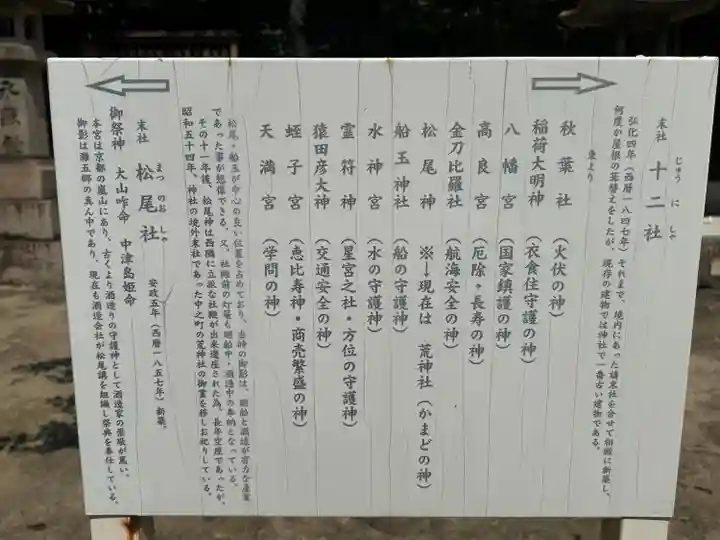 末社 十二社
じゅう に しゃ
弘化四年（西暦一八四七年）それまで、境内にあった諸末社を合せて相殿に新築し、
何度か屋根の葺替えをしたが、現存の建物では神社で一番古い建物である。
東より
秋葉社（火伏の神）
稲荷大明神（衣食住守護の神）
八幡宮（国家鎮護の神）
高良宮（厄除・長寿の神）
金刀比羅社（航海安全の神）
松尾神 ※↓現在は 荒神社（かまどの神）
船玉神社（船の守護神）
水神宮（水の守護神）
霊符神（星宮之社・方位の守護神）
猿田彦大神（交通安全の神）
蛭子宮（恵比寿神・商売繁盛の神）
天満宮（学問の神）
松尾・船玉が中心の良い位置を占めており、当時の御影は、廻船と酒造が有力な産業
であった事が想像できる。又、社殿前の灯篭も廻船中・酒造中の奉納となっている。
その十一年後、松尾神は西隣に立派な社殿が出来遷座された為、長年空座であったが、
昭和五十四年、神社の境外末社であった中之町の荒神社の御霊を移しお祀りしている。
末社 松尾社
まつ の お しゃ
安政五年（西暦一八五七年）新築。
御祭神 大山咋命 中津島姫命
本宮は京都の嵐山にあり、古くより酒造りの守護神として酒造家の崇敬が篤い。
御影は灘五郷の真ん中であり、現在も酒造会社が松尾講を組織し祭典を奉仕している。